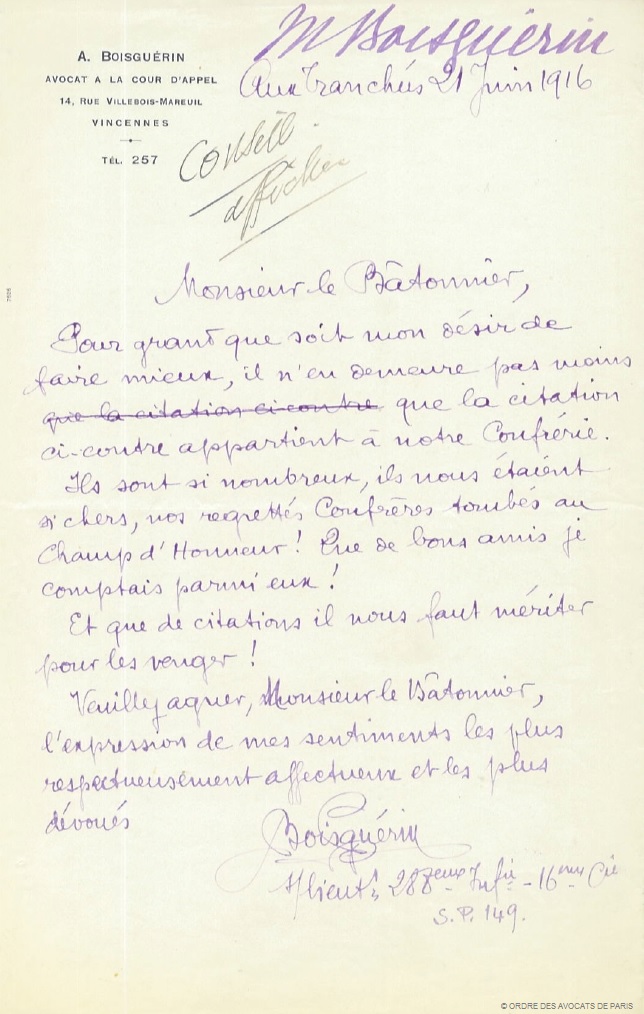 M Boisguérin
A. BOISGUÉRIN
AVOCAT A LA COUR D'APPEL
14, RUE VILLEBOIS-MAREUIL
VINCENNES
TÉL. 257
Aux Tranchées 21 Juin 1916
Conseil
afficher
Monsieur le Bâtonnier,
Pour grand que soit mon désir de
faire mieux, il n'en demeure pas moins
que la citation ci-contre que la citation
ci-contre appartient à notre Confrérie.
Ils sont si nombreux, ils nous étaient
si chers, nos regrettés Confrères tombés au
Champ d'Honneur ! Que de bons amis je
comptais parmi eux !
Et que de citations il nous faut mériter
pour les venger !
Veuillez agréer, Monsieur le Bâtonnier,
l'expression de mes sentiments les plus
respectueusement affectueux et les plus
dévoués
Boisguérin
288eme Infie - 16eme Cie
S.P. 149.
© ORDRE DES AVOCATS DE PARIS